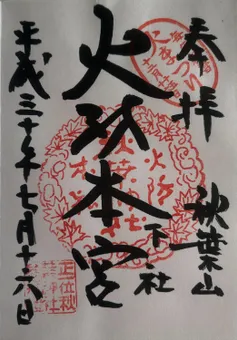 奉拝
秋葉山
下社
火防本宮
平成三十年七月十六日
正一位秋葉神社